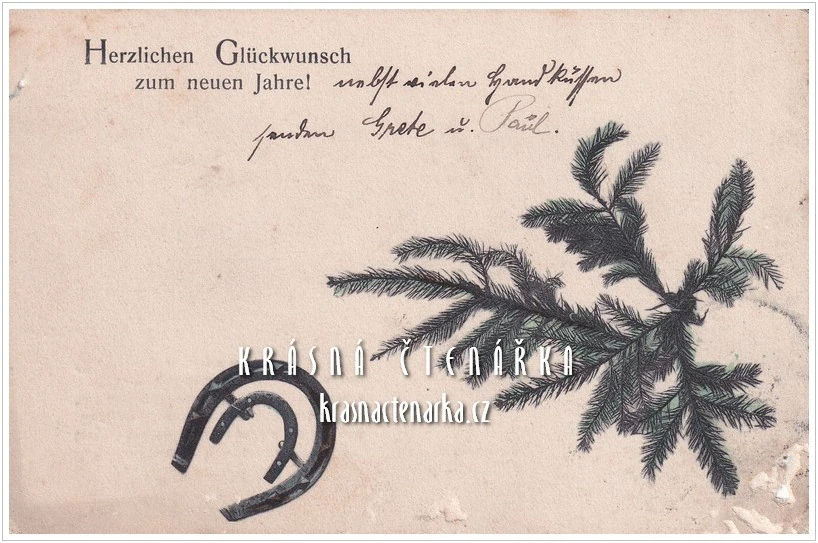 Herzlichen Glückwunsch
zum neuen Jahre! nebst vielen Handküssen
senden Grete u. Paul.
KRÁSNÁ ČTENÁŘKA
krasnactenarka.cz